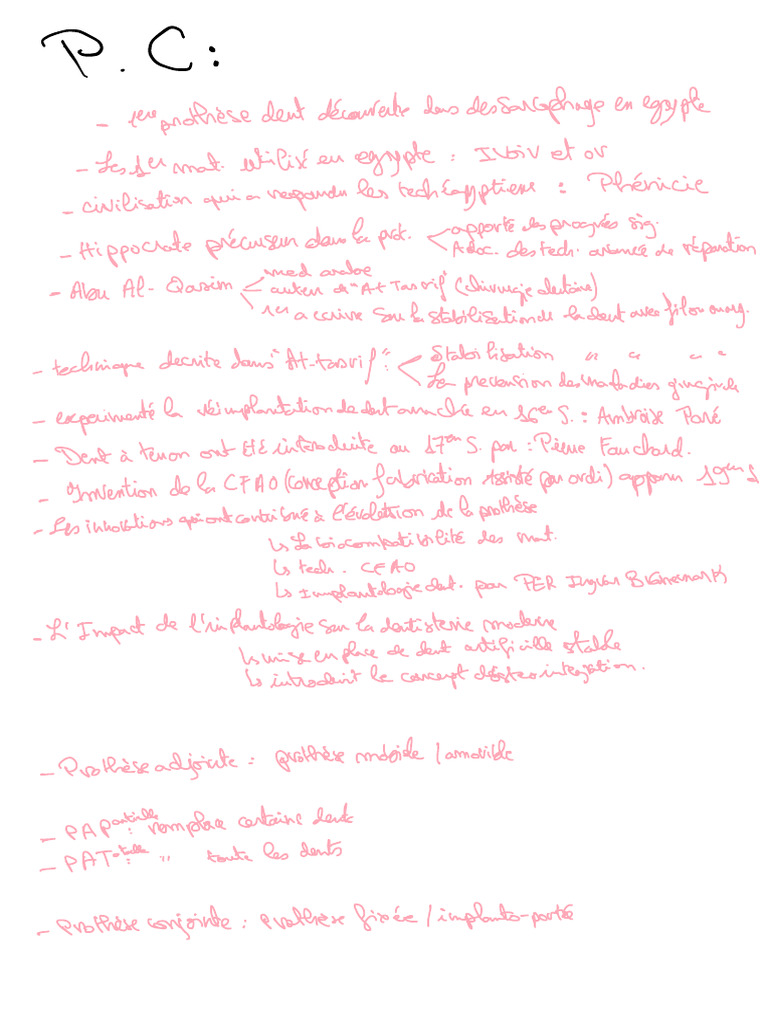 P.C:
- 1ere prothèse dent découverte dans des sarcophage en egypte
- Les 1er mat. utilisé en egypte : Ivoiv et or
- civilisation qui a respandu les tech égyptiens : Phénicie
- Hippocrate précurseur dans la prot. < apporté des progrés sig.
A doc. des tech. avancé de réparation
- Abu Al-Qasim < med arabe
auteur d "At Tasrif" (chirurgie dentaire)
1er a ecrire sur la stabilisation de la dent avec fil ou org.
- technique decrite dans "At-tasrif": < Stabilisation " " " "
La prevension des maladies gingivale
- experimenté la réimplantation de dent arraché en 16em S. : Ambroise Paré
- Dent à tenon ont été introduite au 17em S. par : Pierre Fauchard.
- Invention de la CFAO (conception fabrication assisté par ordi) apparu 19em S
- Les innovations qui ont contribué à l'évolution de la prothèse
↳ La biocompatibilité des mat.
↳ tech. CFAO
↳ Implantologie dent. par PER Ingvar Branemark
- L'Impact de l'implantologie sur la dentisterie moderne
↳ mise en place de dent artificille stable
↳ introduit le concept d'ostéo integration.
- Prothèse adjointe : prothèse mobide / amovible
- PAPartielle : remplace certaine dent
- PATotale : " toute les dents
- Prothèse conjointe : prothèse fixée / implanto-porté